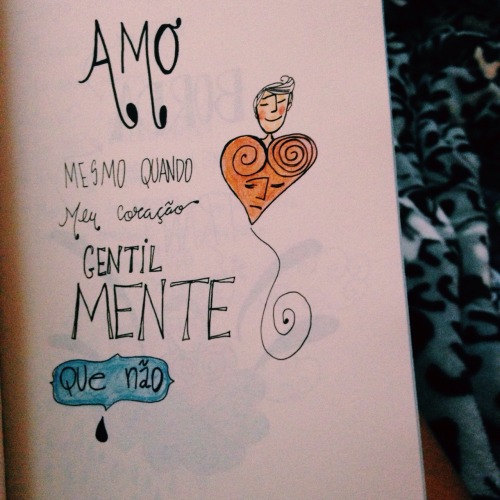 AMO
MESMO QUANDO
Meu coração
GENTIL
MENTE
QUE NÃO